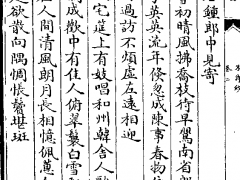 鍾郎中見寄
春初晴風拂喬枝待早鶯南省郎
英英流年倏忽成陳事春物依
過訪不煩虛左遠相迎
宅筵上有妓唱和州韓舍人歌
成歡中有佳人俯翠鬟白雪
人間清風朗月長相憶佩蕙
欲散向隅惆悵鬢堪斑